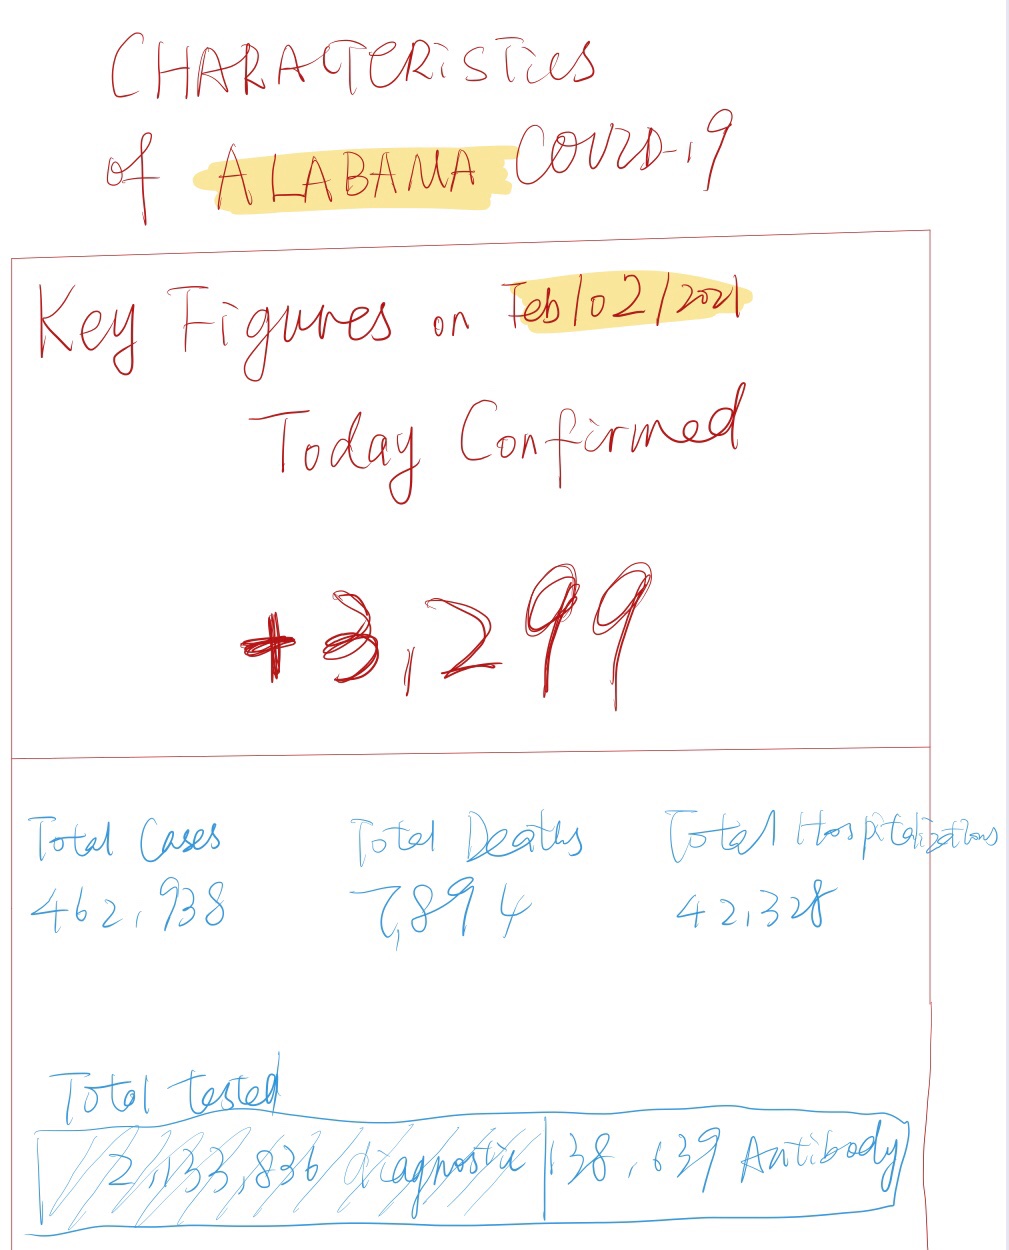 CHARACTERiSTics
of ALABAMA COVID-19
Key Figures on Feb/02/2021
Today Confirmed
+3,299
Total Cases Total Deaths Total Hospitalizations
462,938 7,894 42,328
Total tested
2,133,836 diagnostic 138,639 Antibody